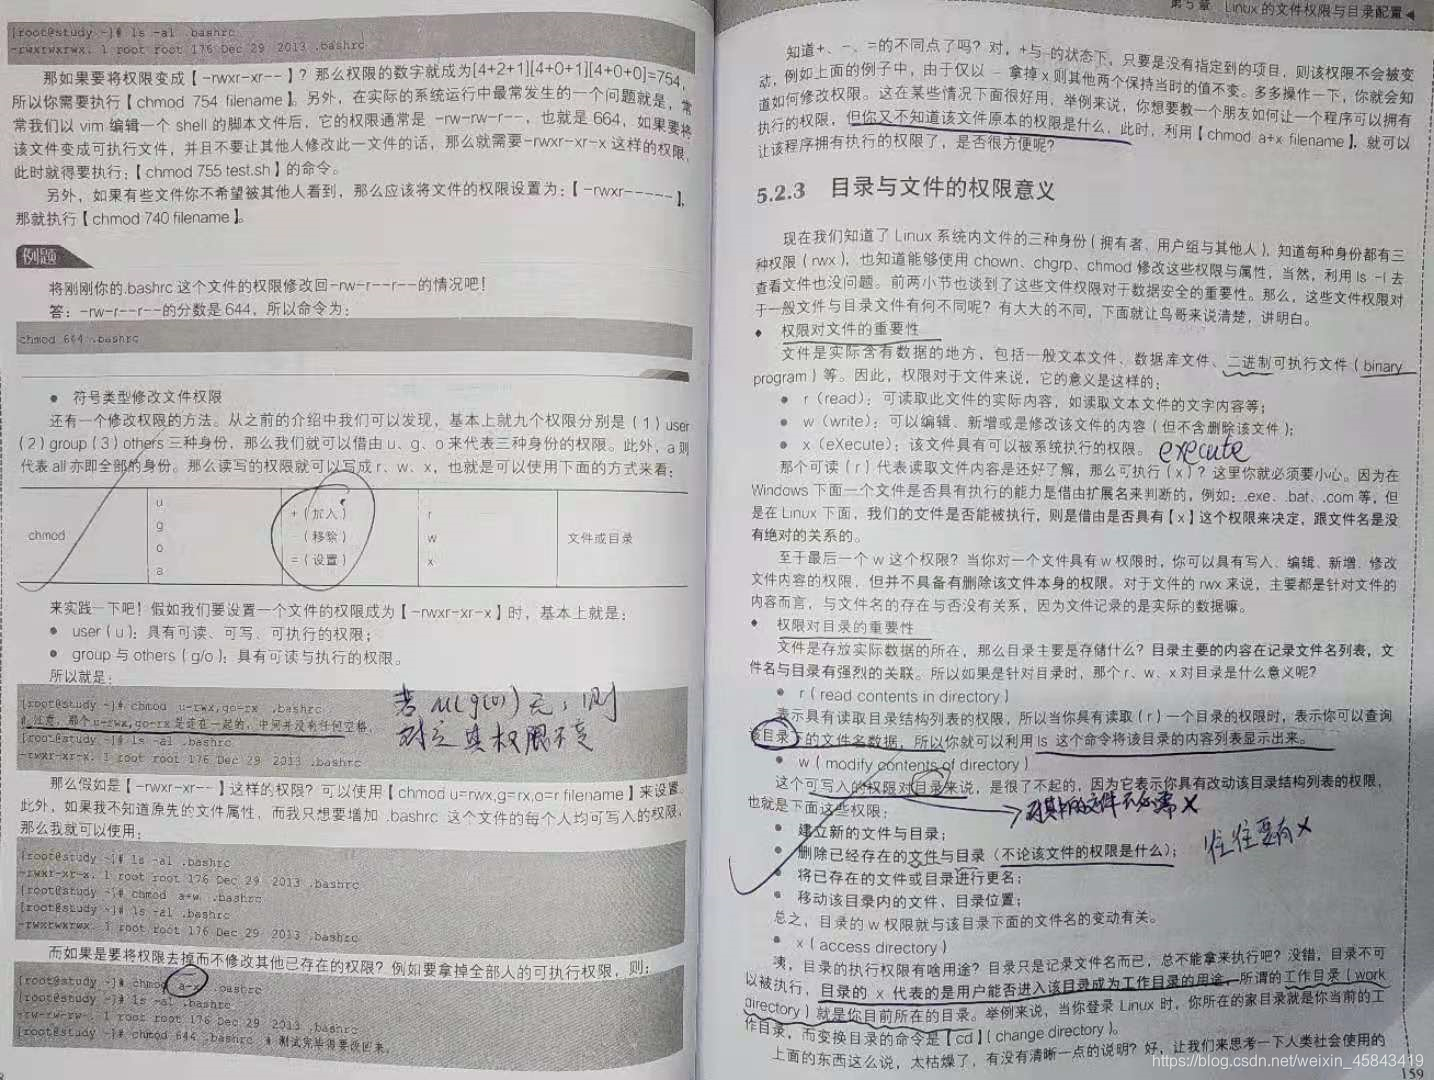 [root@study ~]# ls -al .bashrc
-rwxrwxrwx. 1 root root 176 Dec 29 2013 .bashrc
那如果要将权限变成【-rwxr-xr--】？那么权限的数字就成为[4+2+1][4+0+1][4+0+0]=754，
所以你需要执行【chmod 754 filename】。另外，在实际的系统运行中最常发生的一个问题就是，常
常我们以 vim 编辑一个 shell 的脚本文件后，它的权限通常是 -rw-rw-r--，也就是 664，如果要将
该文件变成可执行文件，并且不要让其他人修改此一文件的话，那么就需要-rwxr-xr-x 这样的权限，
此时就得要执行：【chmod 755 test.sh】的命令。
另外，如果有些文件你不希望被其他人看到，那么应该将文件的权限设置为：【-rwxr-----】，
那就执行【chmod 740 filename】。
例题
将刚刚你的.bashrc 这个文件的权限修改回-rw-r--r--的情况吧！
答：-rw-r--r--的分数是 644，所以命令为：
chmod 644 .bashrc
● 符号类型修改文件权限
还有一个修改权限的方法。从之前的介绍中我们可以发现，基本上就九个权限分别是（1）user
（2）group（3）others 三种身份，那么我们就可以借由 u、g、o 来代表三种身份的权限。此外，a 则
代表 all 亦即全部的身份。那么读写的权限就可以写成 r、w、x，也就是可以使用下面的方式来看：
chmod
u
g
o
a
+（加入）
-（移除）
=（设置）
r
w
x
文件或目录
来实践一下吧！假如我们要设置一个文件的权限成为【-rwxr-xr-x】时，基本上就是：
● user（u）：具有可读、可写、可执行的权限；
● group 与 others（g/o）：具有可读与执行的权限。
所以就是：
[root@study ~]# chmod u-rwx,go-rx .bashrc
# 注意，那个 u-rwx,go-rx 是连在一起的，中间并没有任何空格。
[root@study ~]# ls -al .bashrc
-rwxr-xr-x. 1 root root 176 Dec 29 2013 .bashrc
若 u(g(o)) 无，则
对应其权限不变
那么假如是【-rwxr-xr--】这样的权限？可以使用【chmod u=rwx,g=rx,o=r filename】来设置。
此外，如果我不知道原先的文件属性，而我只想要增加 .bashrc 这个文件的每个人均可写入的权限，
那么我就可以使用：
[root@study ~]# ls -al .bashrc
-rwxr-xr-x. 1 root root 176 Dec 29 2013 .bashrc
[root@study ~]# chmod a+w .bashrc
[root@study ~]# ls -al .bashrc
-rwxrwxrwx. 1 root root 176 Dec 29 2013 .bashrc
而如果是要将权限去掉而不修改其他已存在的权限？例如要拿掉全部人的可执行权限，则：
[root@study ~]# chmod a-x .bashrc
[root@study ~]# ls -al .bashrc
-rw-rw-rw-. 1 root root 176 Dec 29 2013 .bashrc
[root@study ~]# chmod 644 .bashrc # 测试完毕得要改回来。
第 5 章 Linux 的文件权限与目录配置
知道+、-、=的不同点了吗？对，+与-的状态下，只要是没有指定到的项目，则该权限不会被变
动，例如上面的例子中，由于仅以 - 拿掉 x 则其他两个保持当时的值不变。多多操作一下，你就会知
道如何修改权限。这在某些情况下面很好用，举例来说，你想要教一个朋友如何让一个程序可以拥有
执行的权限，但你又不知道该文件原本的权限是什么，此时，利用【chmod a+x filename】，就可以
让该程序拥有执行的权限了，是否很方便呢？
5.2.3 目录与文件的权限意义
现在我们知道了 Linux 系统内文件的三种身份（拥有者、用户组与其他人），知道每种身份都有三
种权限（rwx），也知道能够使用 chown、chgrp、chmod 修改这些权限与属性，当然，利用 ls -l 去
查看文件也没问题。前两小节也谈到了这些文件权限对于数据安全的重要性。那么，这些文件权限对
于一般文件与目录文件有何不同呢？有大大的不同，下面就让鸟哥来说清楚，讲明白。
◆ 权限对文件的重要性
文件是实际含有数据的地方，包括一般文本文件、数据库文件、二进制可执行文件（binary
program）等。因此，权限对于文件来说，它的意义是这样的：
● r（read）：可读取此文件的实际内容，如读取文本文件的文字内容等；
● w（write）：可以编辑、新增或是修改该文件的内容（但不含删除该文件）；
● x（eXecute）：该文件具有可以被系统执行的权限。
execute
那个可读（r）代表读取文件内容是还好了解，那么可执行（x）？这里你就必须要小心。因为在
Windows 下面一个文件是否具有执行的能力是借由扩展名来判断的，例如：.exe、.bat、.com 等，但
是在 Linux 下面，我们的文件是否能被执行，则是借由是否具有【x】这个权限来决定，跟文件名是没
有绝对的关系的。
至于最后一个 w 这个权限？当你对一个文件具有 w 权限时，你可以具有写入、编辑、新增、修改
文件内容的权限，但并不具备有删除该文件本身的权限。对于文件的 rwx 来说，主要都是针对文件的
内容而言，与文件名的存在与否没有关系，因为文件记录的是实际的数据嘛。
◆ 权限对目录的重要性
文件是存放实际数据的所在，那么目录主要是存储什么？目录主要的内容在记录文件名列表，文
件名与目录有强烈的关联。所以如果是针对目录时，那个 r、w、x 对目录是什么意义呢？
● r（read contents in directory）
表示具有读取目录结构列表的权限，所以当你具有读取（r）一个目录的权限时，表示你可以查询
该目录下的文件名数据，所以你就可以利用 ls 这个命令将该目录的内容列表显示出来。
● w（modify contents of directory）
这个可写入的权限对目录来说，是很了不起的，因为它表示你具有改动该目录结构列表的权限，
也就是下面这些权限：
● 建立新的文件与目录；
● 删除已经存在的文件与目录（不论该文件的权限是什么）；
往往要有 x
● 将已存在的文件或目录进行更名；
● 移动该目录内的文件、目录位置；
总之，目录的 w 权限就与该目录下面的文件名的变动有关。
● x（access directory）
咦，目录的执行权限有啥用途？目录只是记录文件名而已，总不能拿来执行吧？没错，目录不可
以被执行，目录的 x 代表的是用户能否进入该目录成为工作目录的用途，所谓的工作目录（work
directory）就是你目前所在的目录。举例来说，当你登录 Linux 时，你所在的家目录就是你当前的工
作目录，而变换目录的命令是【cd】（change directory）。
上面的东西这么说，太枯燥了，有没有清晰一点的说明？好，让我们来思考一下人类社会使用的
159
https://blog.csdn.net/weixin_45843419